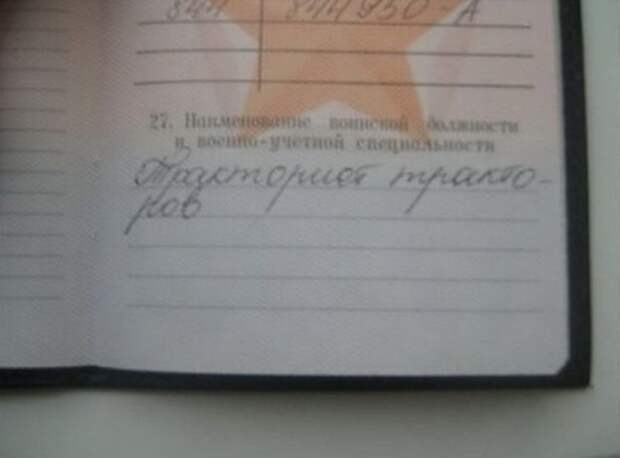 844 844950-А
27. Наименование воинской должности
и военно-учетной специальности
Тракторист тракто-
ров